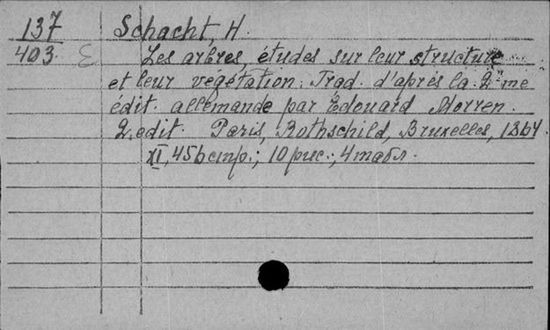 137 Schacht, H.
403 Les arbres, études sur leur structure
et leur végétation. Trad. d'après la 2-me
édit. allemande par Edouard Morren.
2. edit. Paris, Rothschild, Bruxelles, 1864.
XI, 456 стр.; 10 рис.; 4 табл.